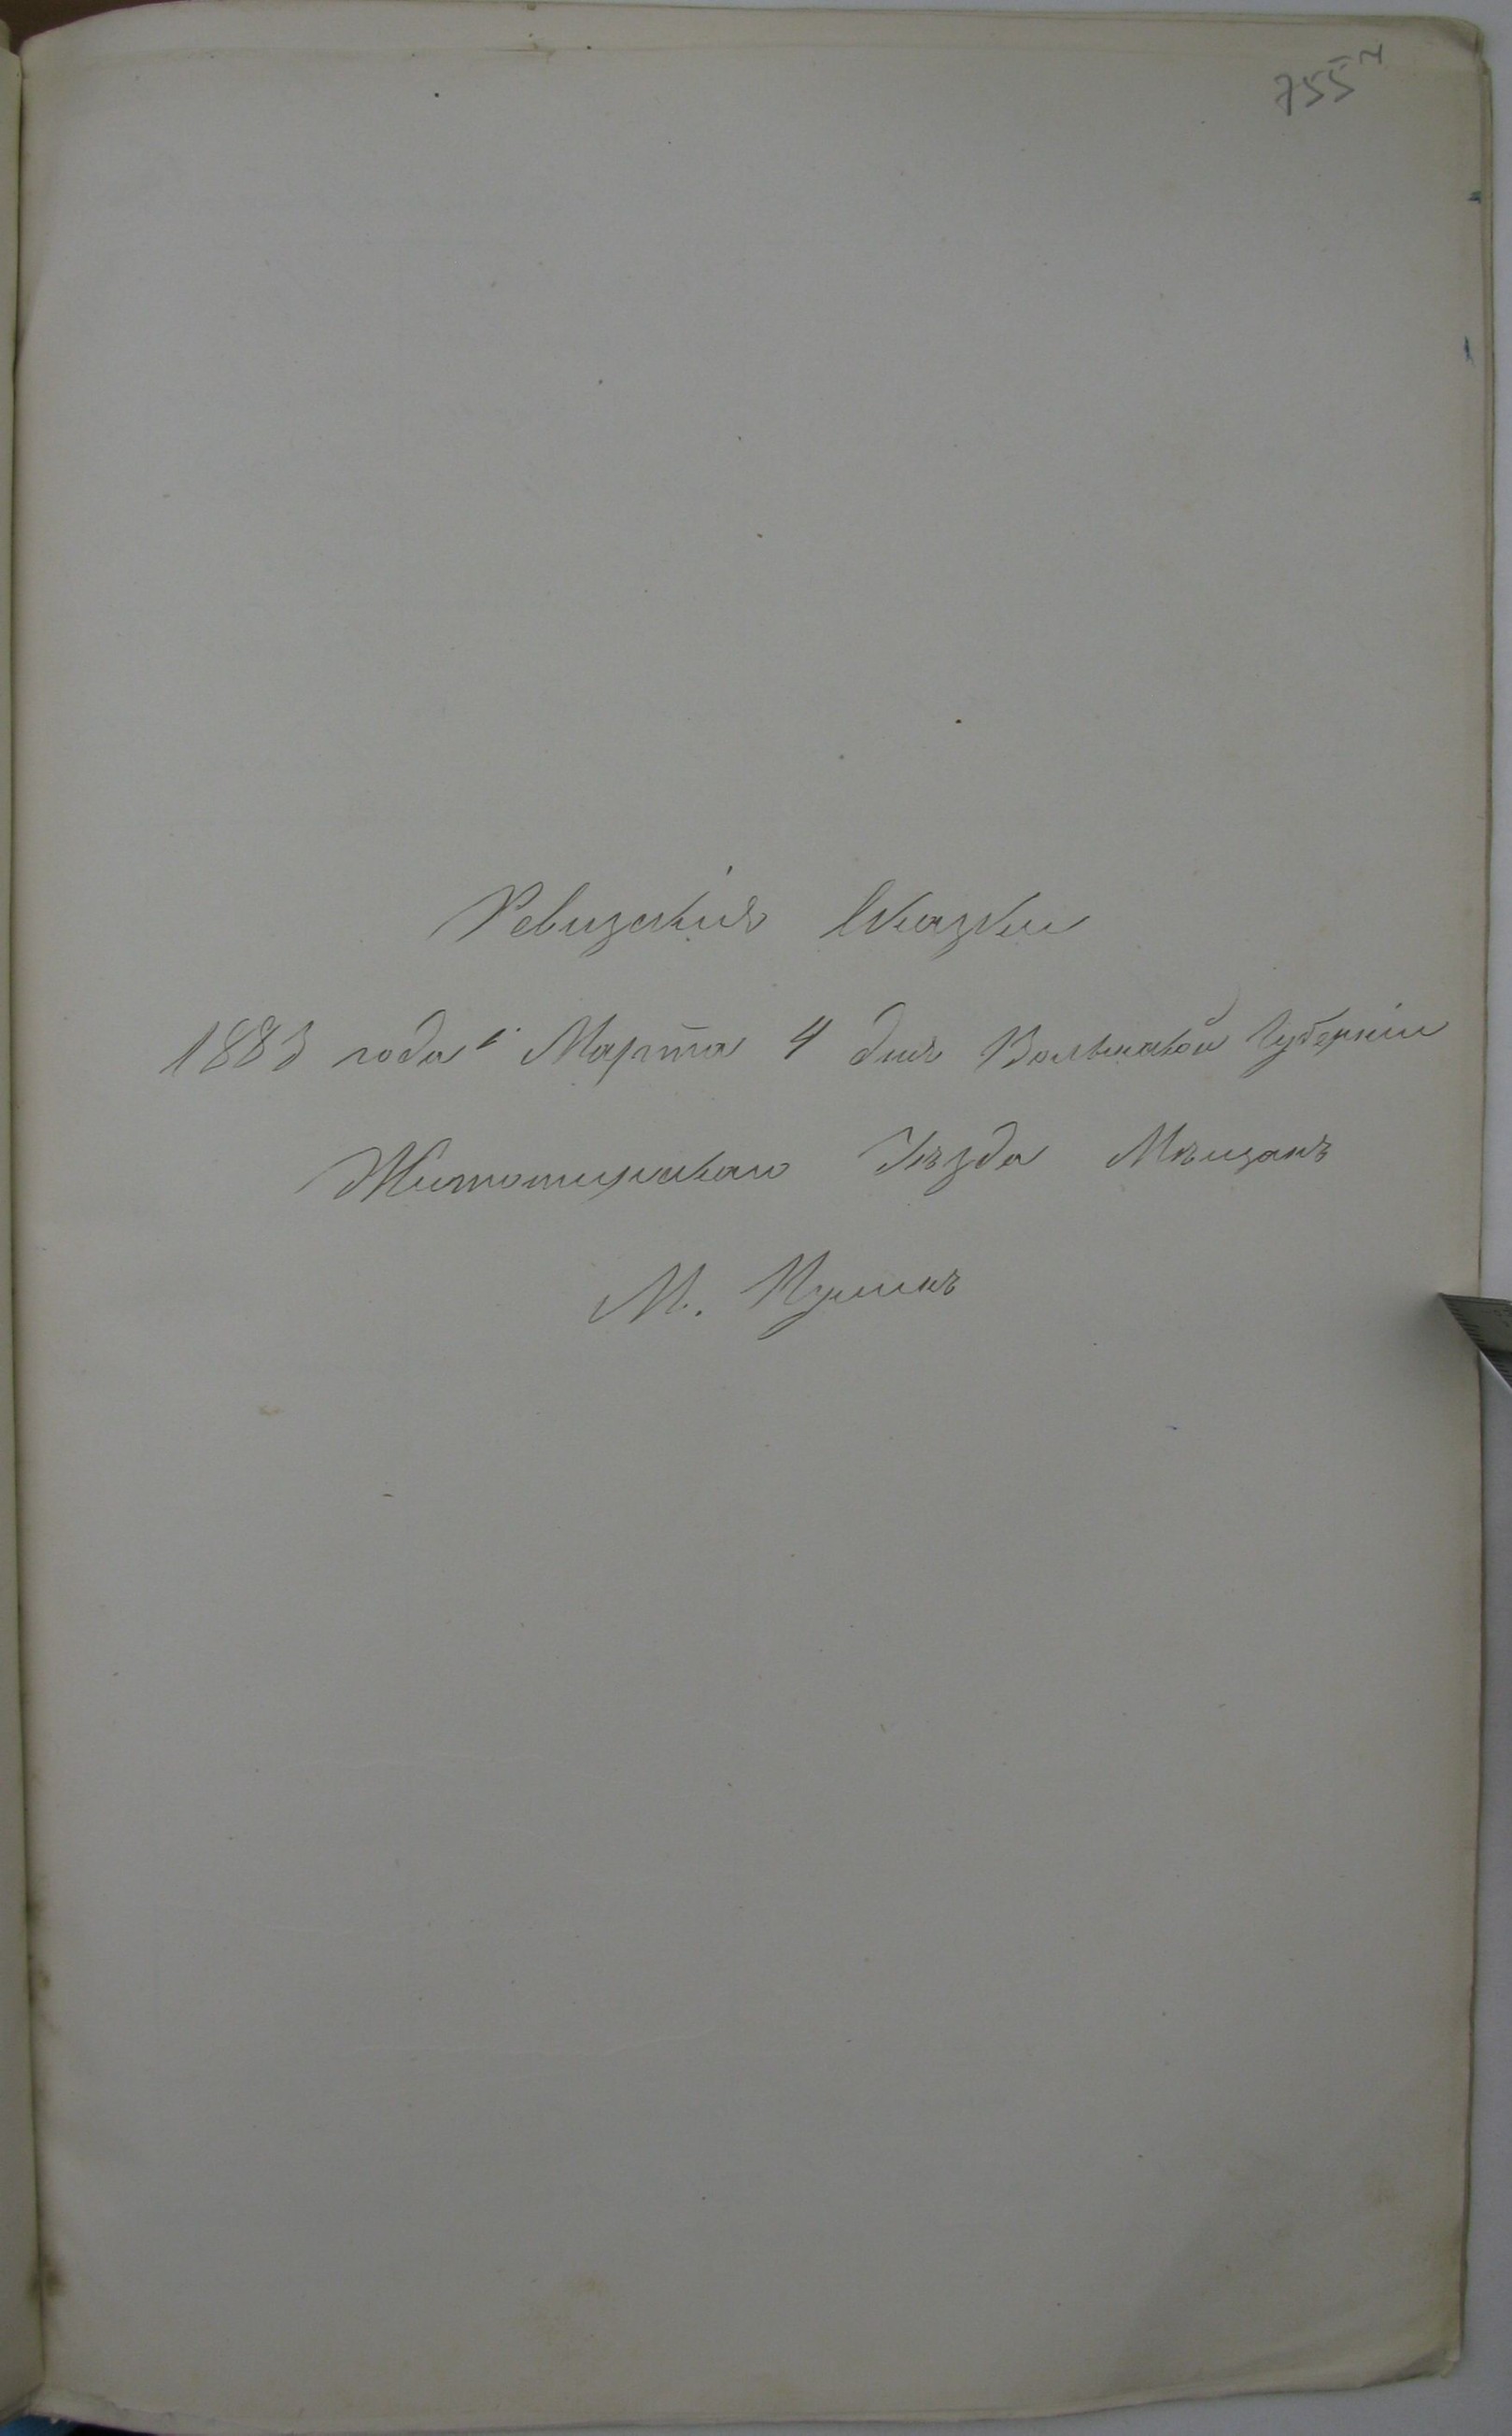 755
Ревизскія Сказки
1883 года Марта 4 дня Волынской Губерніи
Житомирскаго Уѣзда Мѣщанъ
М. Кулинъ